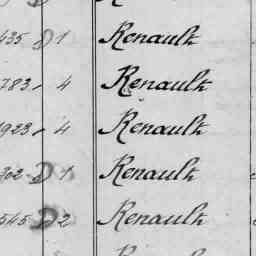 435 D 1 Renault
783 4 Renault
1923 4 Renault
302 D 1 Renault
545 D 2 Renault